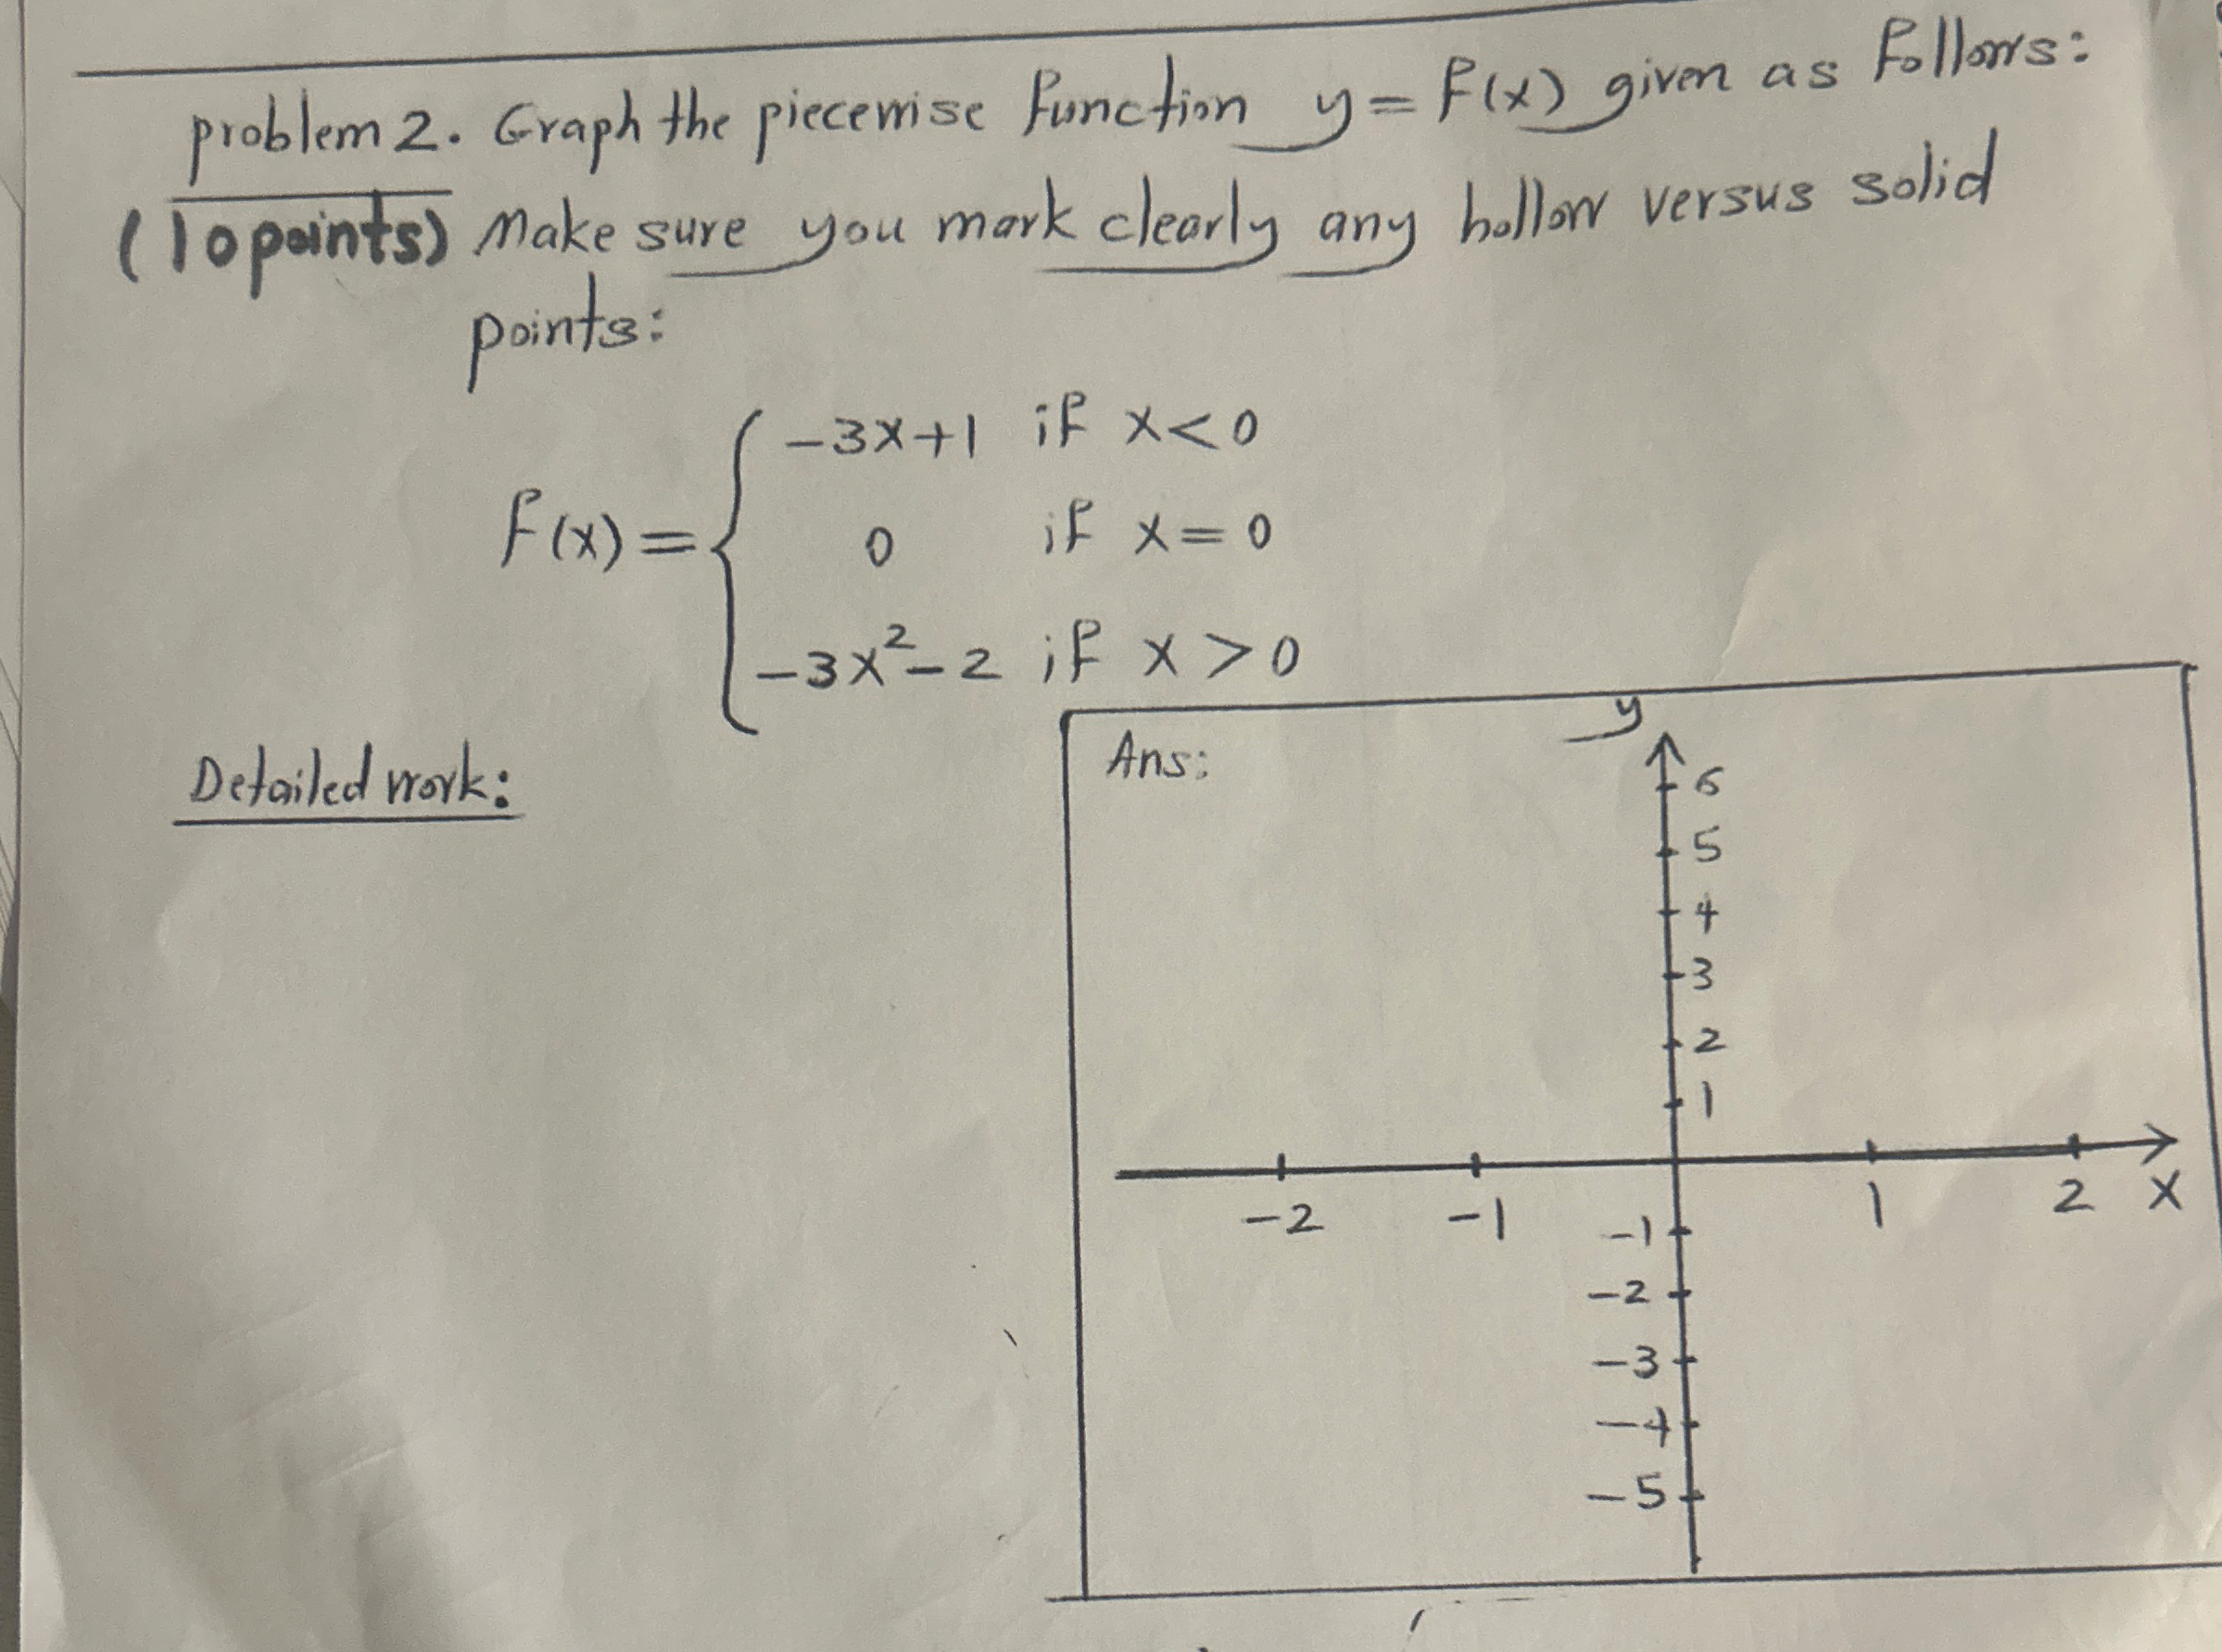 problem 2. Graph the piecewise function y = f(x) given as follows:
(10 points) Make sure you mark clearly any hollow versus solid
points:
-3x+1 if x<0
f(x) = { 0 if x = 0
-3x²-2 if x > 0
Detailed work:
Ans:
y
6
5
4
3
2
1
-2 -1 1 2 x
-1
-2
-3
-4
-5